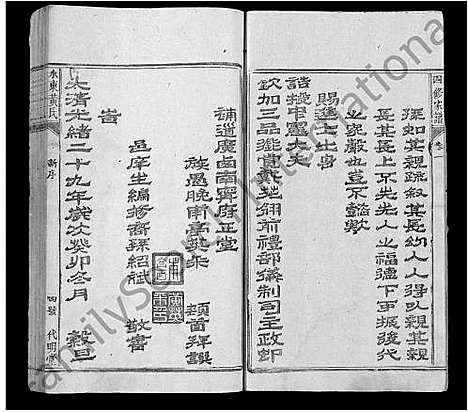 四修家譜
卷一
孫如其親疏敘其長幼人人得以親其親
長其長上京先人之福德下事振後代
之家嚴也豈不懿歟
賜進士出身
誥授中憲大夫
欽加三品銜賞戴花翎前禮部儀制司主政即
補道廣西南寧府正堂
族愚晚甫高英年
頓首拜譔
邑庠生編修裔孫紹斌
敬書
峕
大清光緒二十九年歲次癸卯冬月
穀旦
水東黃氏
新序
四號
代明
FamilySearch International